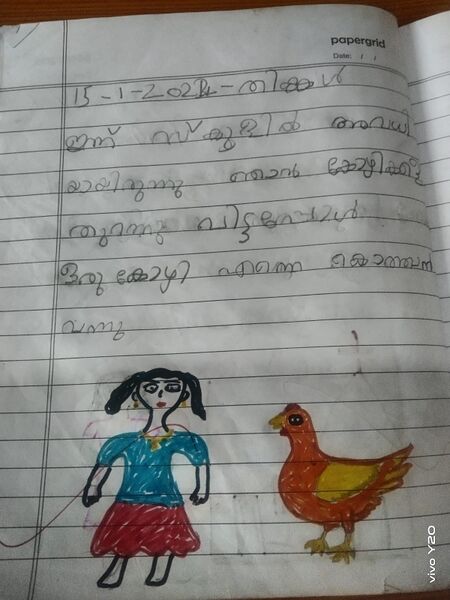 papergrid
Date: / /
15-1-2024-തിങ്കൾ
ഇന്ന് സ്കൂളിൽ അവധി
യായിരുന്നു ഞാൻ കോഴികളെ
തുറന്നു വിട്ടപ്പോൾ
ഒരു കോഴി എന്നെ കൊത്താൻ
വന്നു
vivo Y20